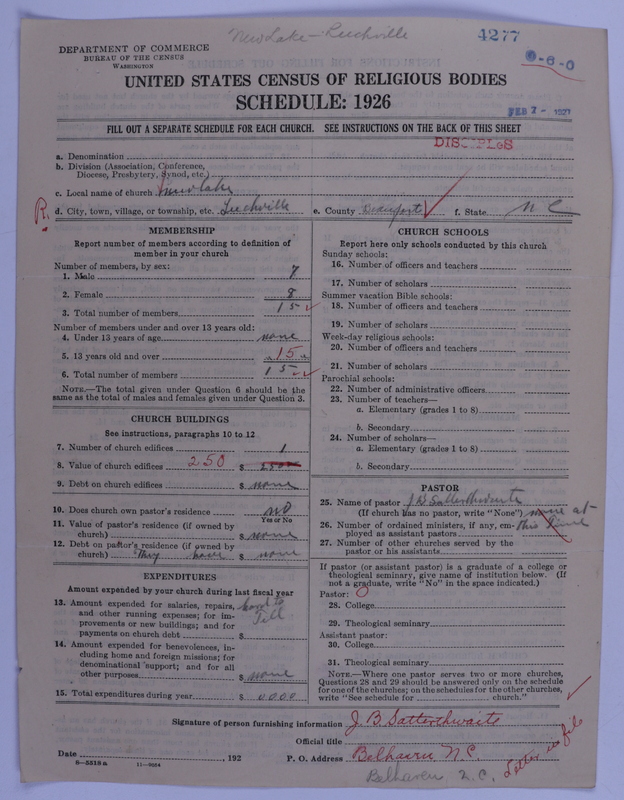 New Lake - Leechville
4277
0-6-0
DEPARTMENT OF COMMERCE
BUREAU OF THE CENSUS
WASHINGTON
UNITED STATES CENSUS OF RELIGIOUS BODIES
SCHEDULE: 1926
FEB 7 - 1927
FILL OUT A SEPARATE SCHEDULE FOR EACH CHURCH. SEE INSTRUCTIONS ON THE BACK OF THIS SHEET
DISCIPLES
a. Denomination
b. Division (Association, Conference,
Diocese, Presbytery, Synod, etc.)
c. Local name of church New Lake
R. d. City, town, village, or township, etc. Leechville e. County Beaufort f. State N C
MEMBERSHIP
Report number of members according to definition of
member in your church
Number of members, by sex:
1. Male 7
2. Female 8
3. Total number of members 15
Number of members under and over 13 years old:
4. Under 13 years of age none
5. 13 years old and over 15
6. Total number of members 15
NOTE.—The total given under Question 6 should be the
same as the total of males and females given under Question 3.
CHURCH BUILDINGS
See instructions, paragraphs 10 to 12
7. Number of church edifices 1
8. Value of church edifices 250 $
9. Debt on church edifices $ none
10. Does church own pastor's residence no
Yes or No
11. Value of pastor's residence (if owned by
church) $ none
12. Debt on pastor's residence (if owned by
church) They have $ none
EXPENDITURES
Amount expended by your church during last fiscal year
13. Amount expended for salaries, repairs,
and other running expenses; for im-
provements or new buildings; and for
payments on church debt $
14. Amount expended for benevolences, in-
cluding home and foreign missions; for
denominational support; and for all
other purposes $ none
15. Total expenditures during year $ 0000
CHURCH SCHOOLS
Report here only schools conducted by this church
Sunday schools:
16. Number of officers and teachers
17. Number of scholars
Summer vacation Bible schools:
18. Number of officers and teachers
19. Number of scholars
Week-day religious schools:
20. Number of officers and teachers
21. Number of scholars
Parochial schools:
22. Number of administrative officers
23. Number of teachers—
a. Elementary (grades 1 to 8)
b. Secondary
24. Number of scholars—
a. Elementary (grades 1 to 8)
b. Secondary
PASTOR
25. Name of pastor J B Satterthwaite
(If church has no pastor, write "None") none at
26. Number of ordained ministers, if any, em- this time
ployed as assistant pastors
27. Number of other churches served by the
pastor or his assistants
If pastor (or assistant pastor) is a graduate of a college or
theological seminary, give name of institution below. (If
not a graduate, write "No" in the space indicated.)
Pastor: 0
28. College
29. Theological seminary
Assistant pastor:
30. College
31. Theological seminary
NOTE.—Where one pastor serves two or more churches,
Questions 28 and 29 should be answered only on the schedule
for one of the churches; on the schedules for the other churches,
write "See schedule for church."
Signature of person furnishing information J. B. Satterthwaite
Official title
Date , 192 P. O. Address Belhaven N.C.
8—5518a 11—9054
Belhaven N.C.
Letter in file